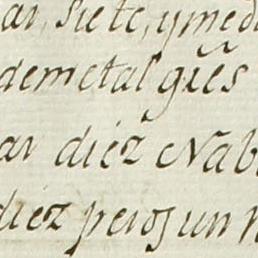 ar, siete, y med
demetal q̃ es
ar diéz Nab
diéz peros un